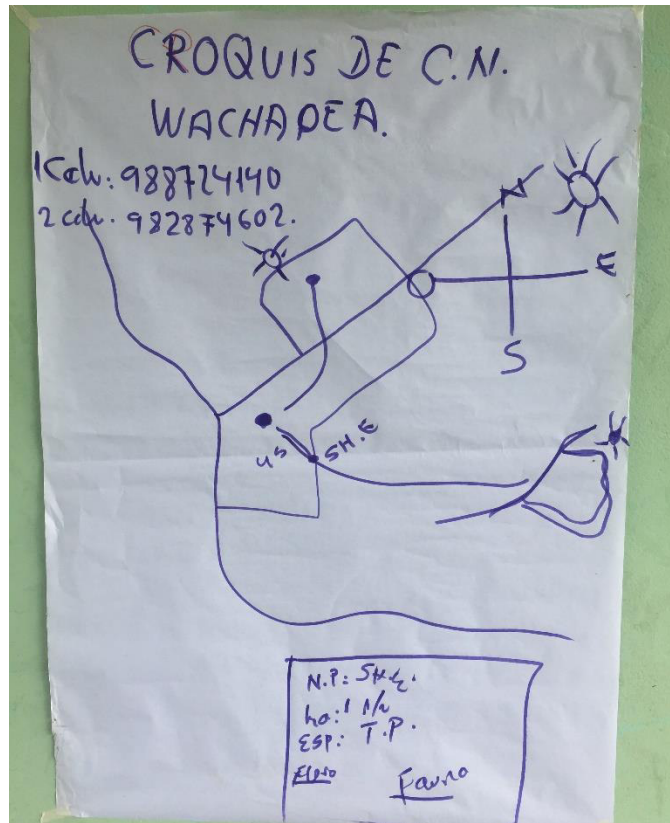 CROQUIS DE C.N.
WACHAPEA.
1Celu: 988724140
2 celu. 982874602.
N
E
S
SH.E
us
N.P: SH.E.
ha: 1 1/2
ESP: T.P.
Flora
Fauna